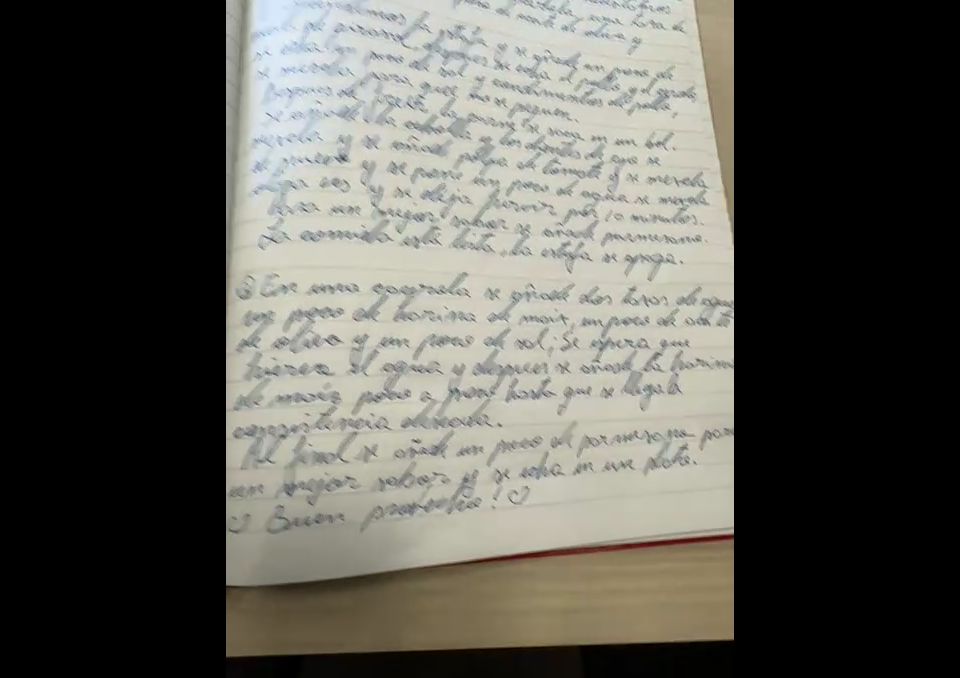 una taza de
de aceite de oliva y
la estufa y se añade un poco de
aceite de girasol, después se echa el pollo y el cerdo,
se echa un poco de sal y condimentos de pollo,
se mezcla para que no se peguen.
Después de la carne se pone en un bol.
Se añade la cebolla y los dientes de ajo se
mezcla y se añade pulpa de tomate y se mezcla
se pone y se pone un poco de agua se mezcla
otra vez y se deja hervir por 10 minutos.
Para un mejor sabor se añade parmesano.
La comida está lista, la estufa se apaga.
② En una cazuela se añade dos tazas de agua
un poco de harina de maíz, un poco de aceite
de oliva y un poco de sal; Se espera que
hierva el agua y después se añade la harina
de maíz poco a poco hasta que se llega la
consistencia deseada.
Al final se añade un poco de parmesano para
un mejor sabor y se echa en un plato.
Buen provecho!